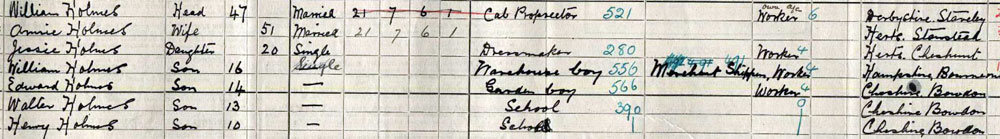 William Holmes Head 47 Married 21 7 6 1 Cab Proprietor 521 own a/c Worker 6 Derbyshire Staveley
Annie Holmes Wife 51 Married 21 7 6 1 Herts. Stanstead
Jessie Holmes Daughter 20 Single Dressmaker 280 Worker 4 Herts. Cheshunt
William Holmes Son 16 Single Warehouse boy 550 Merchant Shipper, Worker 4 Hampshire,
Edward Holmes Son 14 — Garden boy 566 Worker 4 Cheshire Bowdon
Walter Holmes Son 13 — School 390 Cheshire Bowdon
Henry Holmes Son 10 — School 1 Cheshire Bowdon